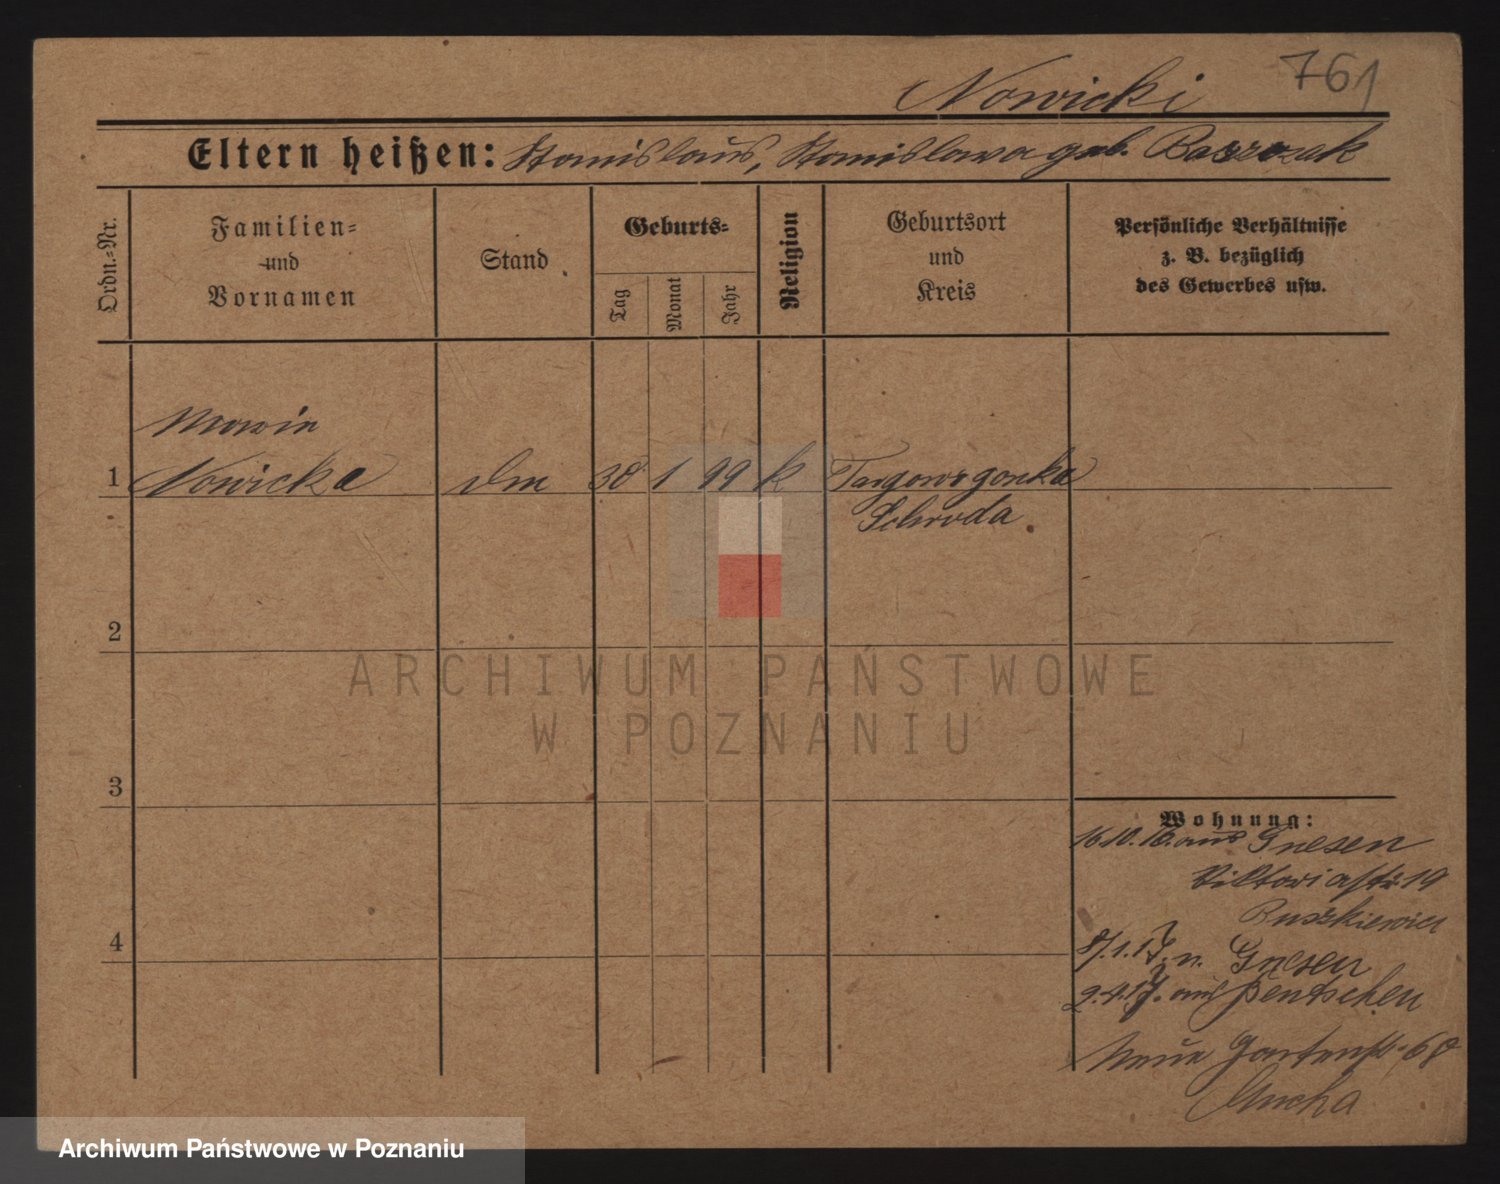 761
Nowicki
Eltern heißen: Stanislaus, Stanislawa geb.
Ordn.-Nr.
Familien- und Vornamen
Stand
Geburts-
Tag
Monat
Jahr
Religion
Geburtsort und Kreis
Persönliche Verhältnisse
z. B. bezüglich
des Gewerbes usw.
Maria
1 Nowicka 30 1 99 k
Schroda
2
ARCHIWUM PAŃSTWOWE
W POZNANIU
3
Wohnung:
16.10.16. aus Gnesen
Viktoriastr. 19
4
8/1.17. n. Gnesen
2.4.17. aus Bentschen
Neue Gartenstr. 68
Mucha
Archiwum Państwowe w Poznaniu